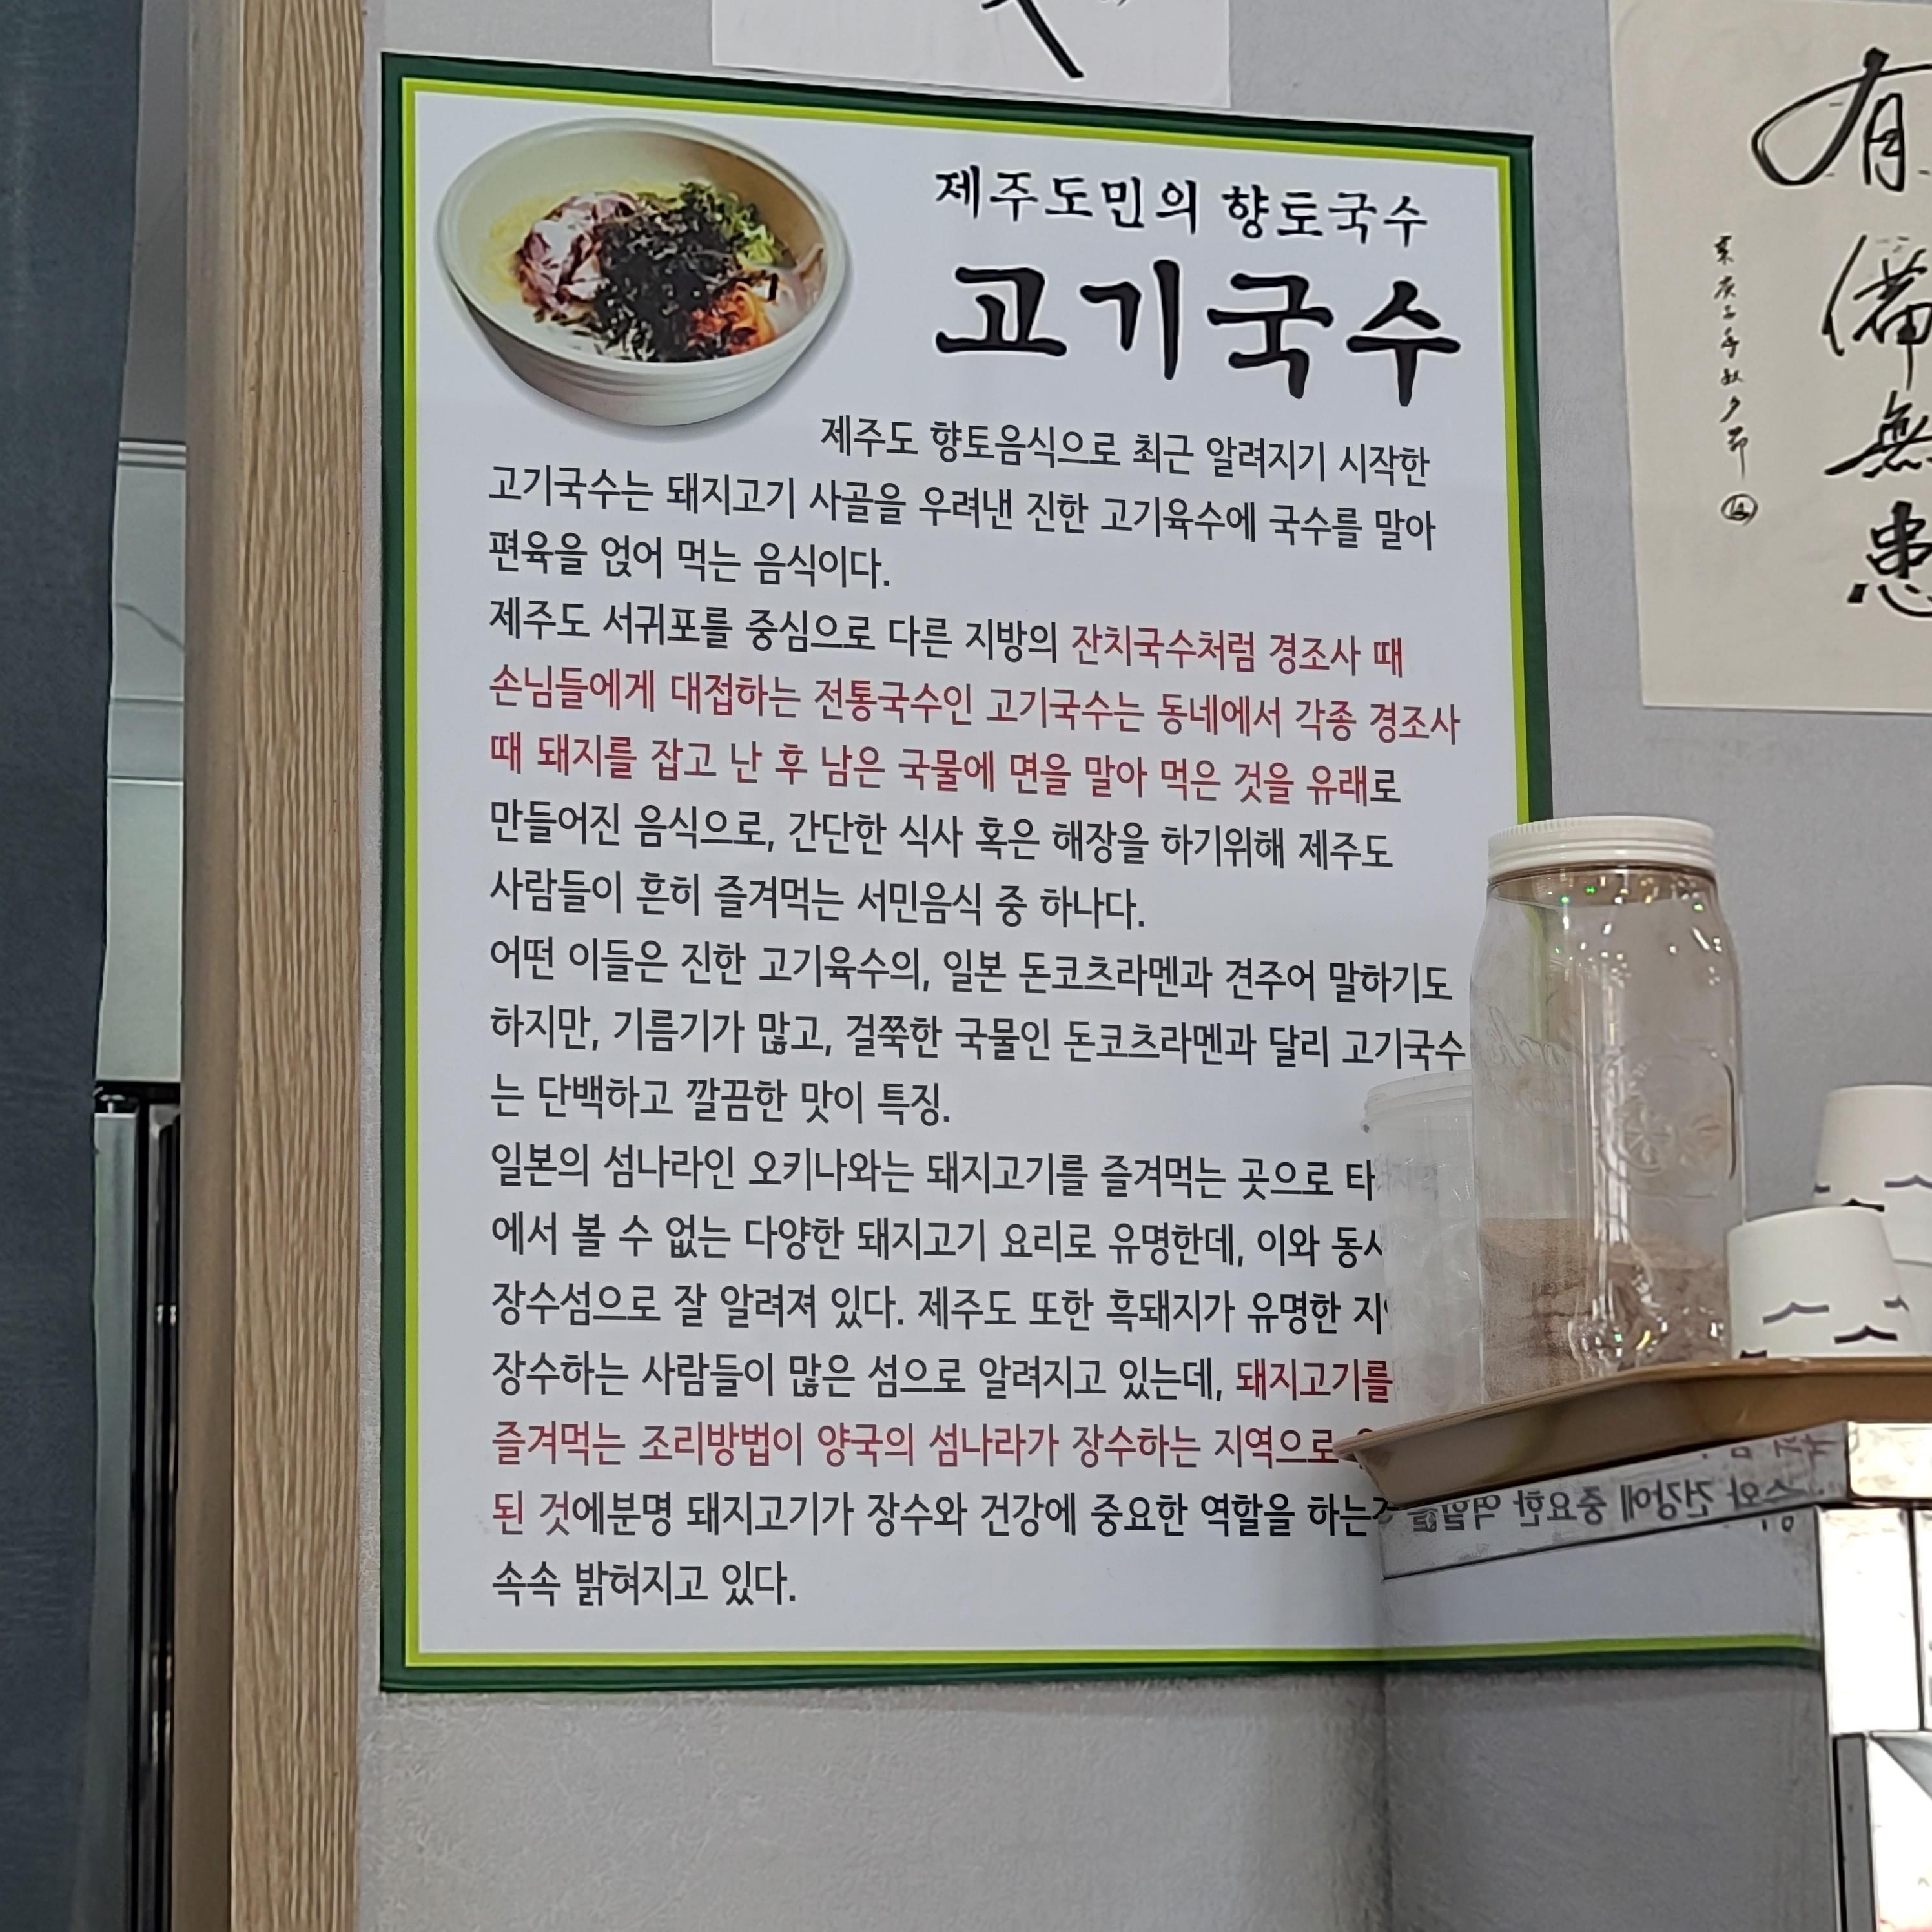 제주도민의 향토국수
고기국수
제주도 향토음식으로 최근 알려지기 시작한
고기국수는 돼지고기 사골을 우려낸 진한 고기육수에 국수를 말아
편육을 얹어 먹는 음식이다.
제주도 서귀포를 중심으로 다른 지방의 잔치국수처럼 경조사 때
손님들에게 대접하는 전통국수인 고기국수는 동네에서 각종 경조사
때 돼지를 잡고 난 후 남은 국물에 면을 말아 먹은 것을 유래로
만들어진 음식으로, 간단한 식사 혹은 해장을 하기위해 제주도
사람들이 흔히 즐겨먹는 서민음식 중 하나다.
어떤 이들은 진한 고기육수의, 일본 돈코츠라멘과 견주어 말하기도
하지만, 기름기가 많고, 걸쭉한 국물인 돈코츠라멘과 달리 고기국수
는 단백하고 깔끔한 맛이 특징.
일본의 섬나라인 오키나와는 돼지고기를 즐겨먹는 곳으로
에서 볼 수 없는 다양한 돼지고기 요리로 유명한데, 이와
장수섬으로 잘 알려져 있다. 제주도 또한 흑돼지가 유명한
장수하는 사람들이 많은 섬으로 알려지고 있는데, 돼지고기를
즐겨먹는 조리방법이 양국의 섬나라가 장수하는 지역으로
된 것에분명 돼지고기가 장수와 건강에 중요한 역할을
속속 밝혀지고 있다.
有
備
無
患